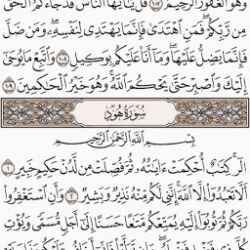 وَهُوَ ٱلْغَفُورُ ٱلرَّحِيمُ ١٠٧ قُلْ يَٰٓأَيُّهَا ٱلنَّاسُ قَدْ جَآءَكُمُ ٱلْحَقُّ
مِن رَّبِّكُمْ ۖ فَمَنِ ٱهْتَدَىٰ فَإِنَّمَا يَهْتَدِى لِنَفْسِهِۦ ۖ وَمَن ضَلَّ
فَإِنَّمَا يَضِلُّ عَلَيْهَا ۖ وَمَآ أَنَا۠ عَلَيْكُم بِوَكِيلٍ ١٠٨ وَٱتَّبِعْ مَا يُوحَىٰٓ
إِلَيْكَ وَٱصْبِرْ حَتَّىٰ يَحْكُمَ ٱللَّهُ ۚ وَهُوَ خَيْرُ ٱلْحَٰكِمِينَ ١٠٩
سُورَةُ هُودٍ
بِسْمِ ٱللَّهِ ٱلرَّحْمَٰنِ ٱلرَّحِيمِ
الٓر ۚ كِتَٰبٌ أُحْكِمَتْ ءَايَٰتُهُۥ ثُمَّ فُصِّلَتْ مِن لَّدُنْ حَكِيمٍ خَبِيرٍ ١
أَلَّا تَعْبُدُوٓا۟ إِلَّا ٱللَّهَ ۚ إِنَّنِى لَكُم مِّنْهُ نَذِيرٌ وَبَشِيرٌ ٢ وَأَنِ ٱسْتَغْفِرُوا۟
رَبَّكُمْ ثُمَّ تُوبُوٓا۟ إِلَيْهِ يُمَتِّعْكُم مَّتَٰعًا حَسَنًا إِلَىٰٓ أَجَلٍ مُّسَمًّى وَيُؤْتِ